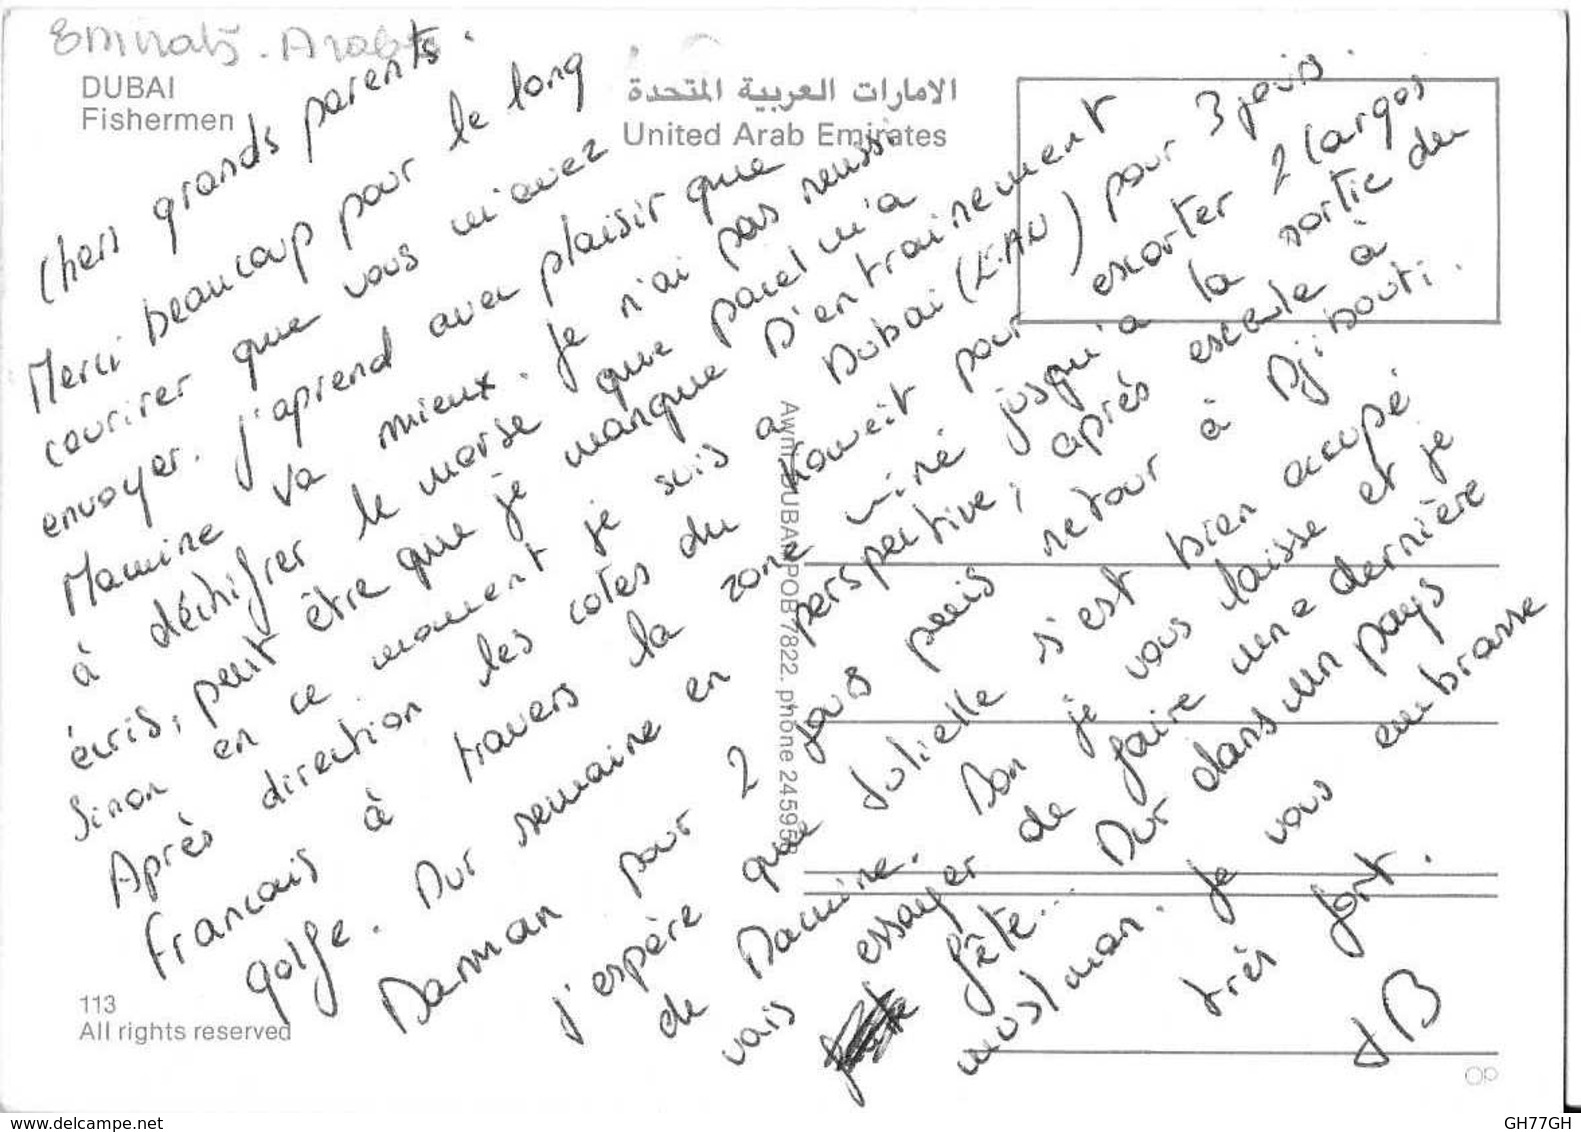 Emirats. Arabes
DUBAI
Fishermen
الامارات العربية المتحدة
United Arab Emirates
Chers grands parents.
Merci beaucoup pour le long
courirer que vous m'avez
envoyer. j'aprend avec plaisir que
Mamine va mieux. Je n'ai pas reussi
à déchifrer le morse que parel m'a
écris, peut être que je manque D'entrainement
Sinon en ce moment je suis a Dubai (E.AU) pour 3 jours.
Après direction les cotes du Koweit pour escorter 2 cargos
Francais à travers la zone miné jusqu'a la sortie du
golfe. Dur semaine en perspective, après escale à
Damman pour 2 jours puis retour à Djibouti.
j'espère que Julielle s'est bien occupé
de Mamine. Bon je vous laisse et je
vais essayer de faire une dernière
fête... Dur dans un pays
muslman. Je vous embrasse
très fort.
JB
Awni DUBAI POB 7822. phone 245959
113
All rights reserved
www.delcampe.net
GH77GH